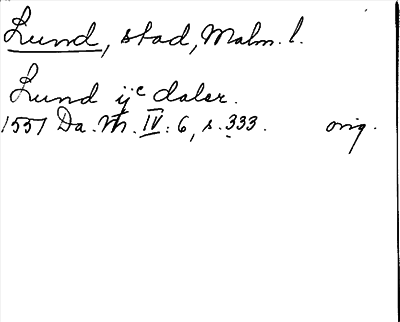 Lund, stad, Malm. l.
Lund ijᶜ daler.
1557 Da. M. IV: 6, s. 333. orig.